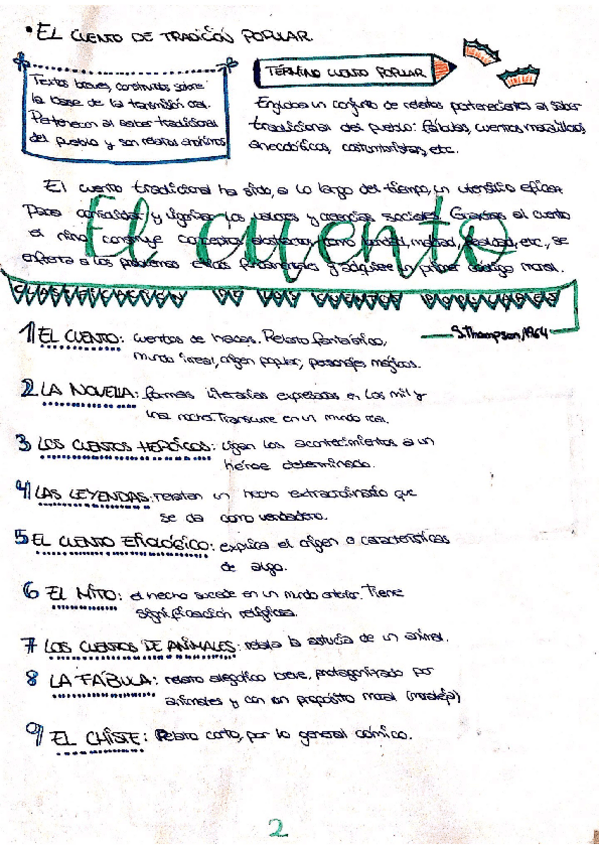 • EL CUENTO DE TRADICIÓN POPULAR
Textos breves, construidos sobre
la base de la transmisión oral.
Pertenecen al saber tradicional
del pueblo y son relatos anónimos
TÉRMINO CUENTO POPULAR
Engloba un conjunto de relatos pertenecientes al saber
tradicional del pueblo: fábulas, cuentos maravillosos,
anecdóticos, costumbristas, etc.
El cuento tradicional ha sido, a lo largo del tiempo, un utensilio eficaz
para consolidar y ligar los valores y creencias sociales. Gracias al cuento
el niño construye conceptos abstractos, como bondad, maldad, etc., se
enfrenta a los problemas fundamentales y adquiere su primer código moral.
El cuento
CLASIFICACIÓN DE LOS CUENTOS POPULARES
S.Thompson, 1964
1 EL CUENTO: cuentos de hadas. Relato fantástico,
mundo irreal, origen popular, personajes mágicos.
2 LA NOVELLA: formas literarias expresadas en Las mil y
una noche. Transcurre en un mundo real.
3 LOS CUENTOS HERÓICOS: ligan los acontecimientos a un
héroe determinado.
4 LAS LEYENDAS: relatan un hecho extraordinario que
se da como verdadero.
5 EL CUENTO ETIOLÓGICO: explica el origen o características
de algo.
6 EL MITO: el hecho sucede en un mundo anterior. Tiene
significación religiosa.
7 LOS CUENTOS DE ANIMALES: relata la astucia de un animal.
8 LA FÁBULA: relato alegórico breve, protagonizado por
animales y con un propósito moral (moraleja)
9 EL CHISTE: Relato corto, por lo general cómico.
2